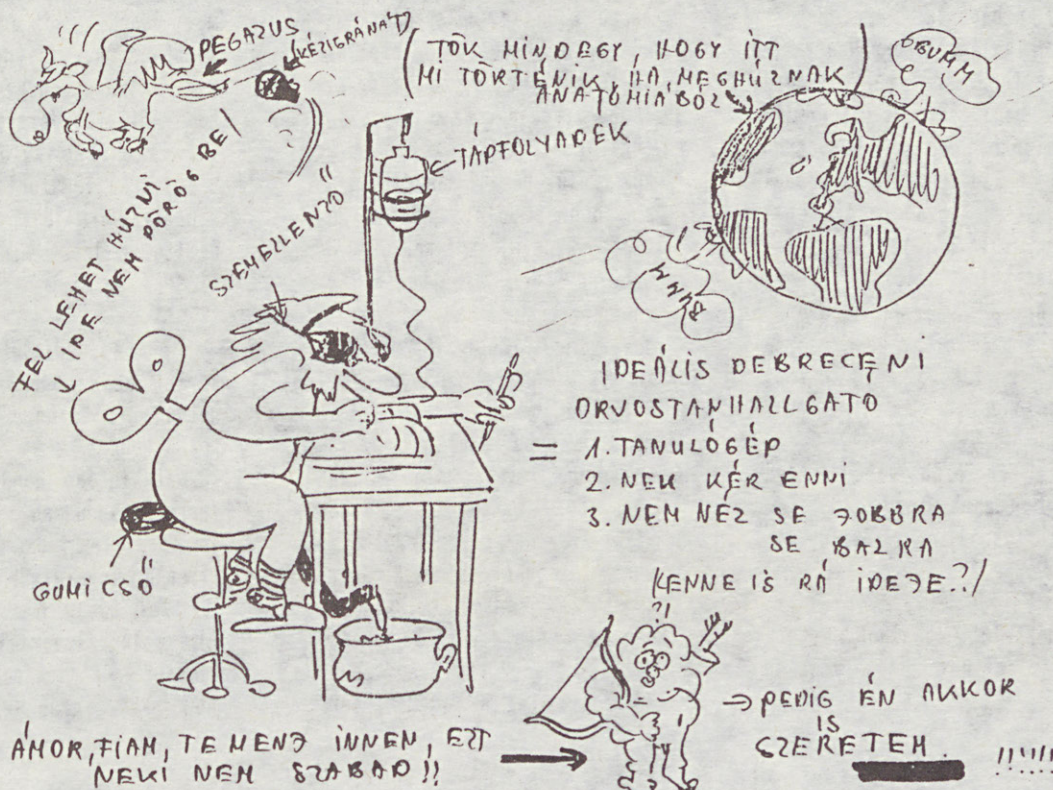 PEGAZUS
(KÉZIGRÁNÁT)
(TÖK MINDEGY, HOGY ITT
MI TÖRTÉNIK, HA MEGHÚZNAK
ANATÓMIÁBÓL)
OBUMM
TÁPFOLYADÉK
FEL LEHET HÚZNI
IDE NEM PÖRÖG BE!
SZEMELLENZŐ
BUMM
IDEÁLIS DEBRECENI
ORVOSTANHALLGATÓ
=
1. TANULÓGÉP
2. NEM KÉR ENNI
3. NEM NÉZ SE JOBBRA
SE BALRA
/LENNE IS RÁ IDEJE?!/
GUMICSŐ
?!
ÁMOR, FIAM, TE MENJ INNEN, EZT
NEKI NEM SZABAD!!
→ PEDIG ÉN AKKOR
IS
SZERETEM. !!!!!!